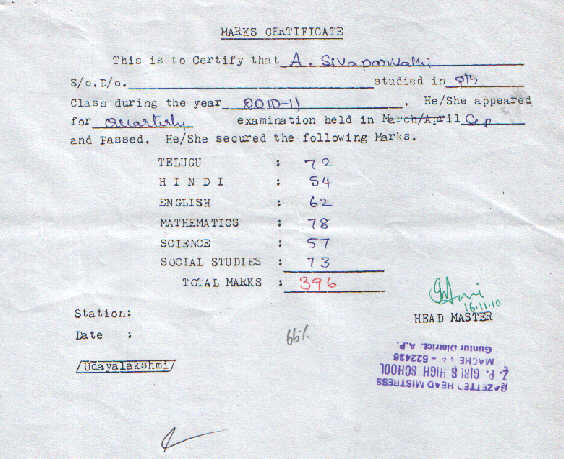 MARKS CERTIFICATE
This is to Certify that A. Sivaparvathi
S/o.D/o. studied in
Class during the year 2010-11 . He/She appeared
for Quarterly examination held in March/April
and passed. He/She secured the following Marks.
TELUGU : 72
HINDI : 54
ENGLISH : 62
MATHEMATICS : 78
SCIENCE : 57
SOCIAL STUDIES : 73
TOTAL MARKS : 396
16.11.10
Station: HEAD MASTER
Date : 66%
/Udayalakshmi/
GAZETTED HEAD MISTRESS
Z. P. GIRLS HIGH SCHOOL
522426
Guntur District, A.P.